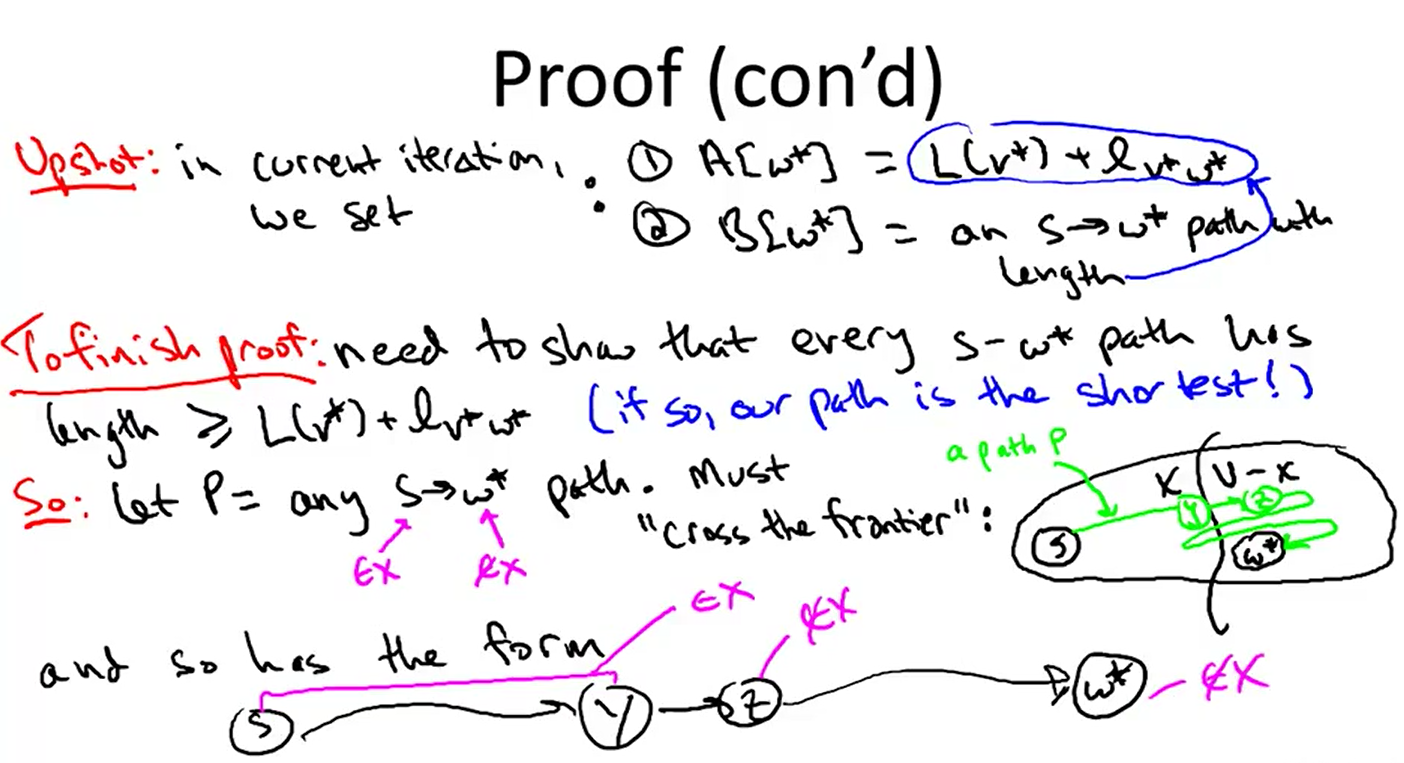 Proof (con'd)
Upshot: in current iteration, we set :
① A[w*] = L(v*) + l_{v*w*}
② B[w*] = an s→w* path with length
To finish proof: need to show that every s-w* path has
length ≥ L(v*) + l_{v*w*} (if so, our path is the shortest!)
So: let P = any s→w* path. Must
"cross the frontier":
∈X ∉X
a path P
X V-X
y z
s w*
and so has the form
∈X ∉X
s y z w* ∉X